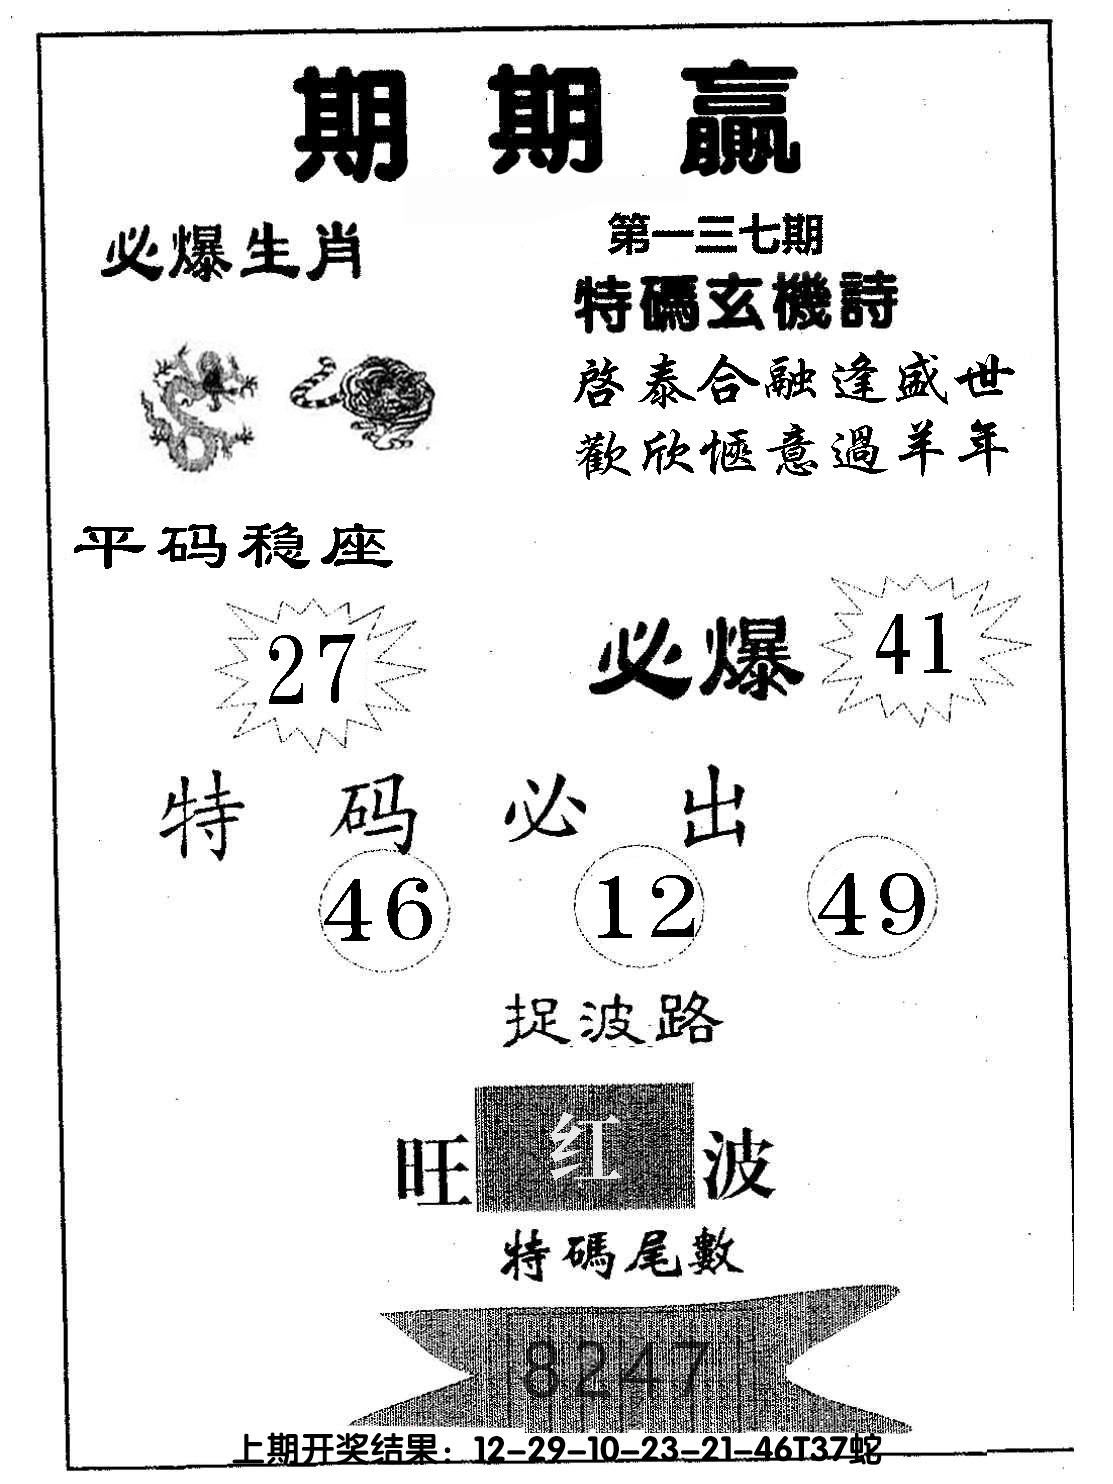 期期赢
必爆生肖
第一三七期
特碼玄機詩
啓泰合融逢盛世
歡欣愜意過羊年
平码稳座
27
必爆 41
特码必出
46 12 49
捉波路
旺 红 波
特碼尾數
8247
上期开奖结果：12-29-10-23-21-46T37蛇